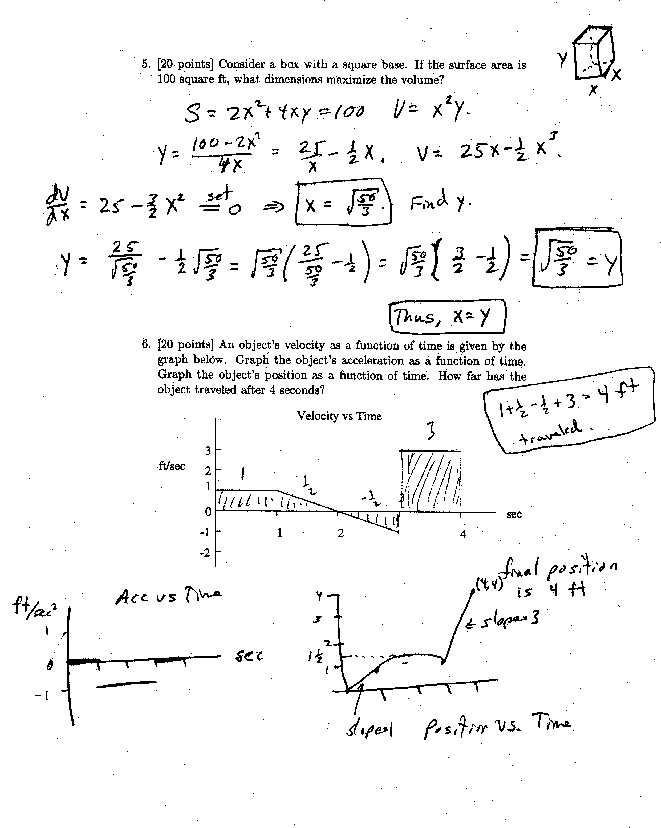 5. [20 points] Consider a box with a square base. If the surface area is
100 square ft, what dimensions maximize the volume?
Y
X
X
S = 2x² + 4xy = 100 V = x²y.
y = (100 - 2x²)/4x = 25/x - ½x. V = 25x - ½x³.
dV/dx = 25 - 3/2 x² set = 0 ⇒ x = √(50/3). Find y.
y = 25/√(50/3) - ½√(50/3) = √(50/3) (25/(50/3) - ½) = √(50/3) (3/2 - ½) = √(50/3) = y
Thus, x = y
6. [20 points] An object's velocity as a function of time is given by the
graph below. Graph the object's acceleration as a function of time.
Graph the object's position as a function of time. How far has the
object traveled after 4 seconds?
1 + ½ - ½ + 3 = 4 ft
traveled.
Velocity vs Time
3
ft/sec
3
2
1
0
-1
-2
1
½
-½
1
2
4
sec
ft/sec²
Acc vs Time
1
0
-1
sec
(4,4) final position
is 4 ft
4
3
2
1½
1
← slope = 3
slope 1
Position vs. Time